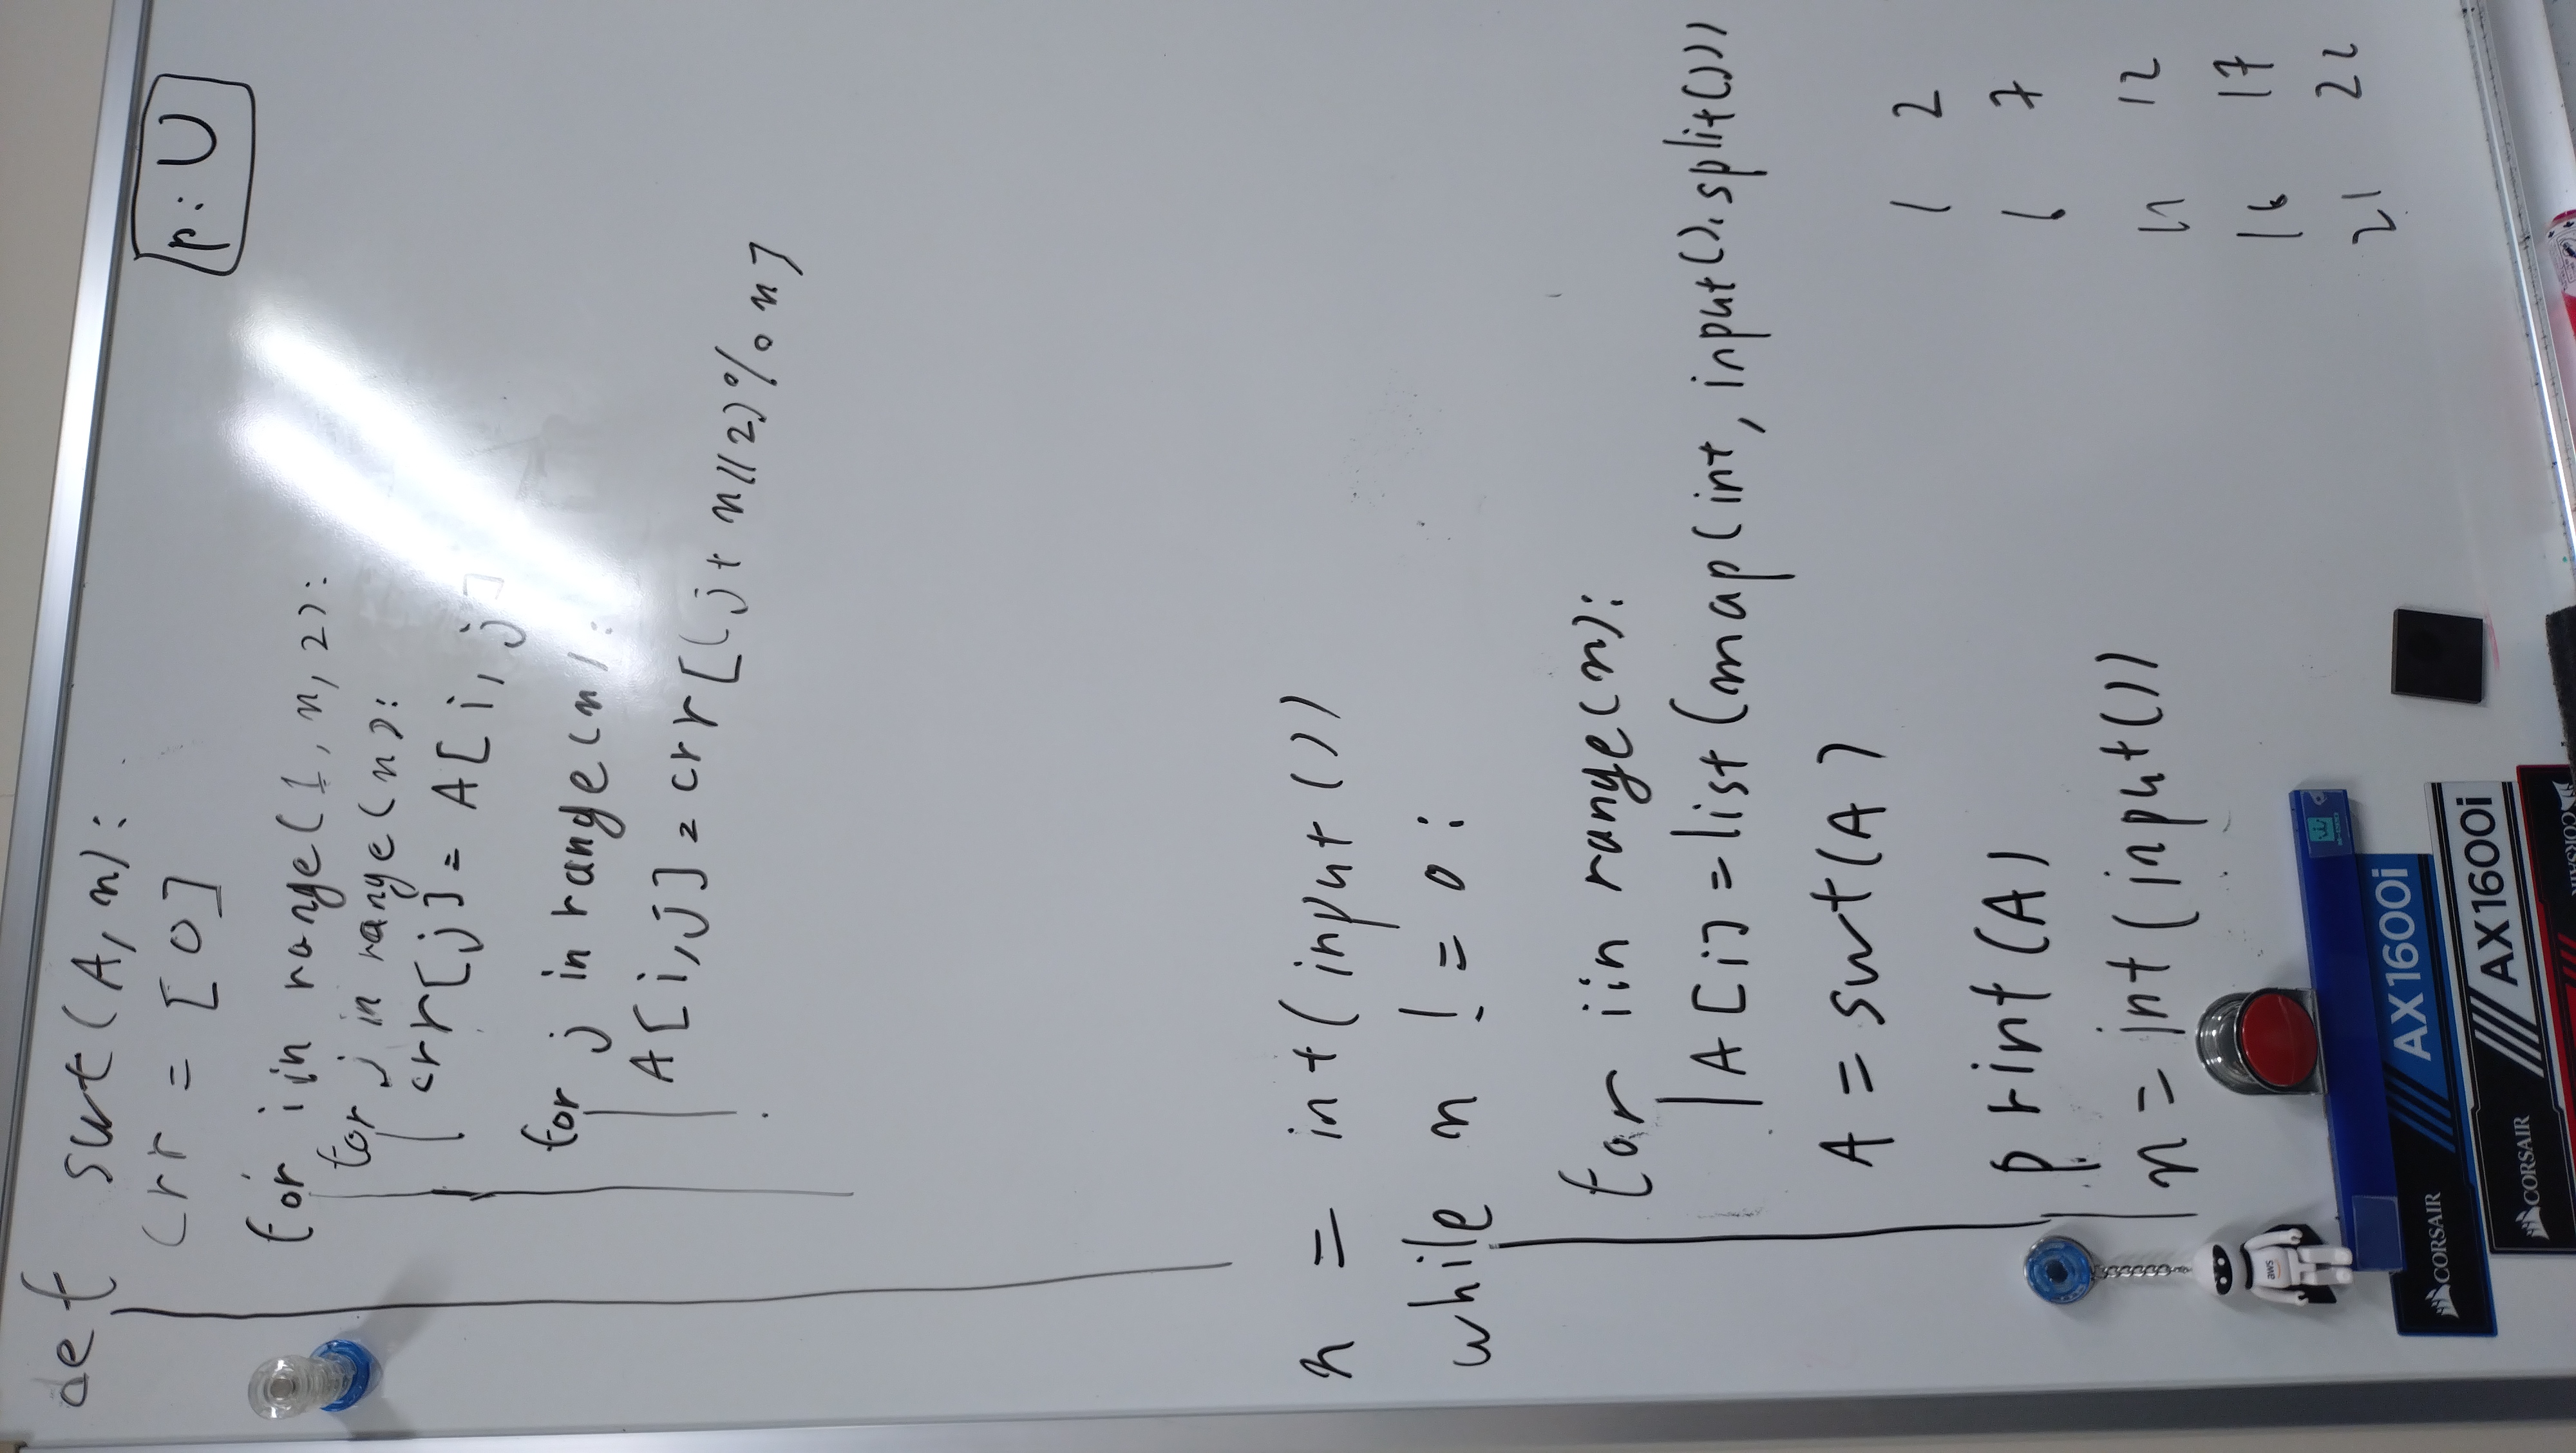 def swt(A, n):
crr = [0]
p: U
for i in range(1, n, 2):
for j in range(n):
crr[j] = A[i, j]
for j in range(n):
A[i,j] = crr[(j+ n//2)% n]
n = int(input())
while n != 0:
for i in range(n):
A[i] = list(map(int, input().split()))
A = swt(A)
print(A)
n = int(input())
1 2
6 7
11 12
16 17
21 22
aws
CORSAIR AX1600i
CORSAIR AX1600i
CORSAIR